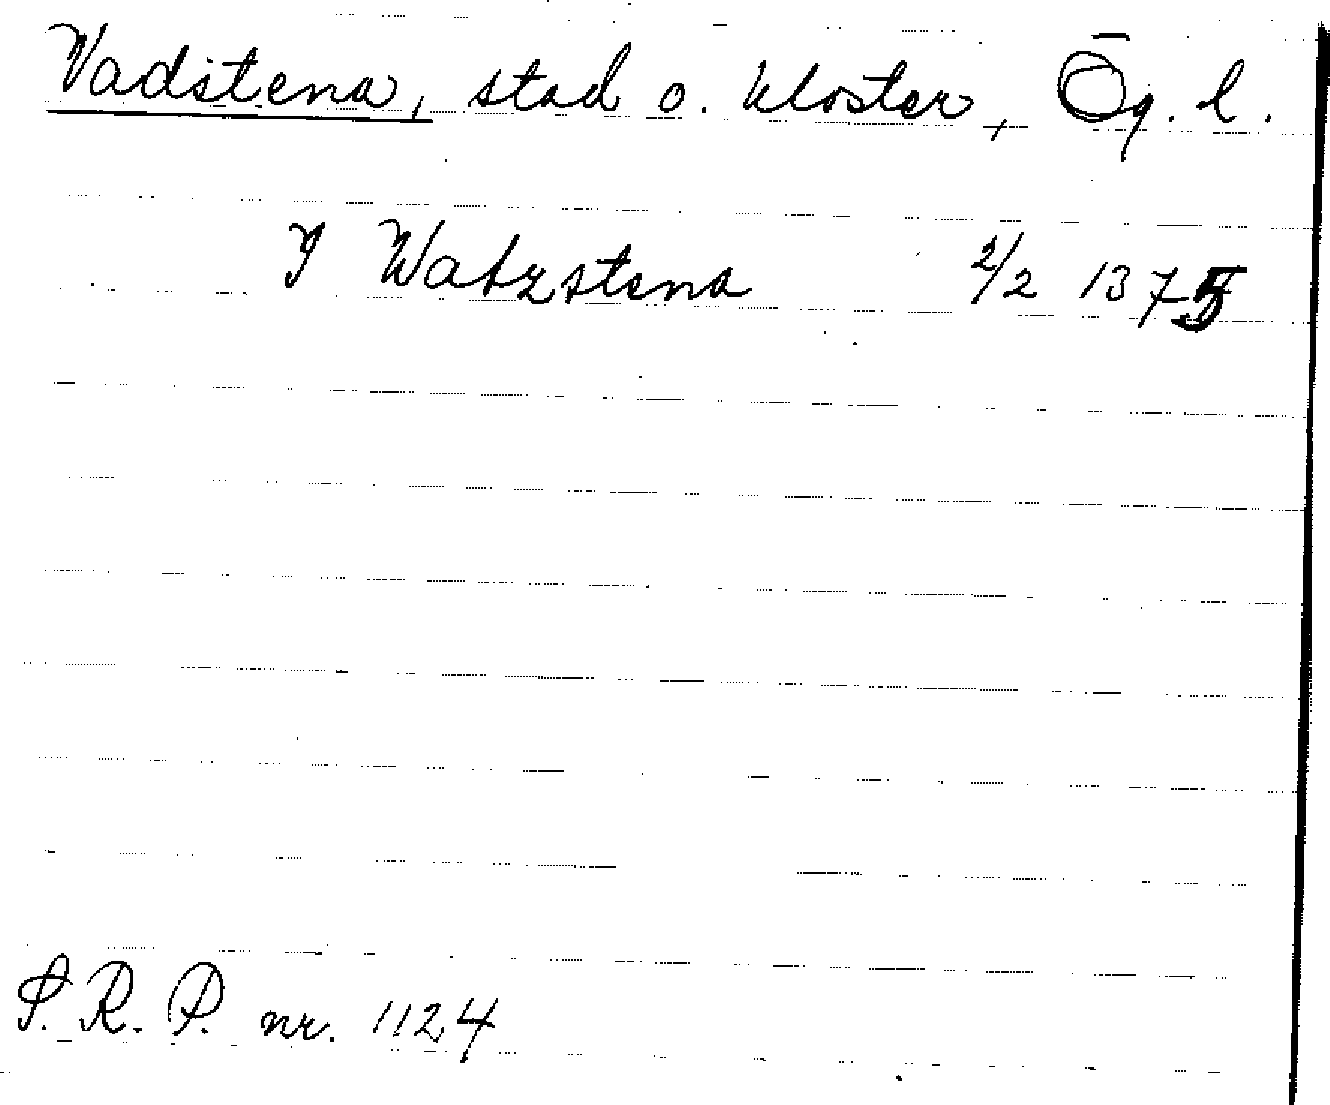 Vadstena, stad o. kloster, Ög. l.
I Watzstena 2/2 1375
S. R. P. nr. 1124